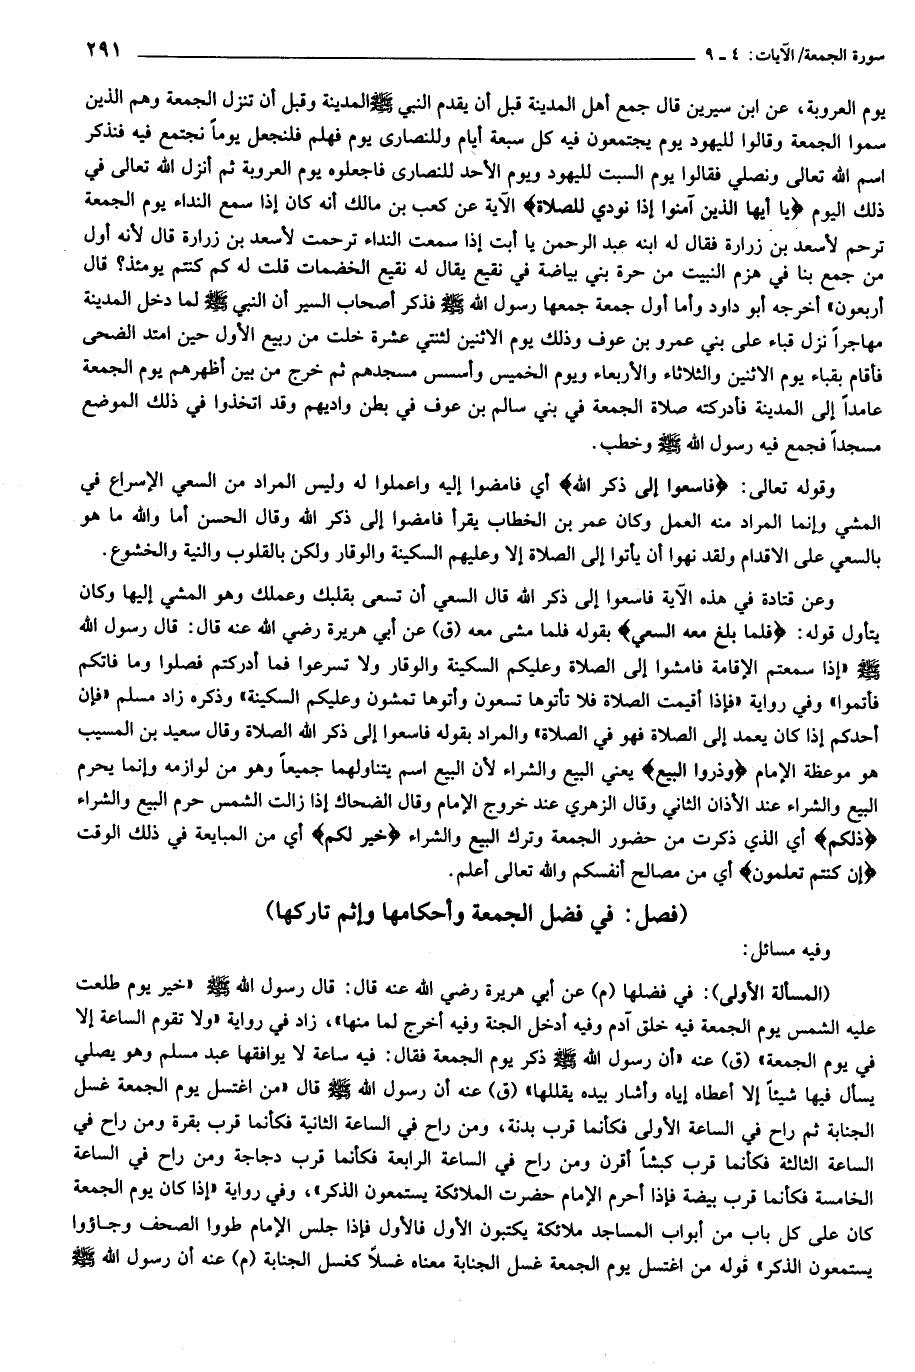 سورة الجمعة/ الآيات: ٤ ـ ٩ ٢٩١
يوم العروبة، عن ابن سيرين قال جمع أهل المدينة قبل أن يقدم النبي ﷺ المدينة وقبل أن تنزل الجمعة وهم الذين
سموا الجمعة وقالوا لليهود يوم يجتمعون فيه كل سبعة أيام وللنصارى يوم فهلم فلنجعل يوماً نجتمع فيه فنذكر
اسم الله تعالى ونصلي فقالوا يوم السبت لليهود ويوم الأحد للنصارى فاجعلوه يوم العروبة ثم أنزل الله تعالى في
ذلك اليوم ﴿يا أيها الذين آمنوا إذا نودي للصلاة﴾ الآية عن كعب بن مالك أنه كان إذا سمع النداء يوم الجمعة
ترحم لأسعد بن زرارة فقال له ابنه عبد الرحمن يا أبت إذا سمعت النداء ترحمت لأسعد بن زرارة قال لأنه أول
من جمع بنا في هزم النبيت من حرة بني بياضة في نقيع يقال له نقيع الخضمات قلت له كم كنتم يومئذ؟ قال
أربعون» أخرجه أبو داود وأما أول جمعة جمعها رسول الله ﷺ فذكر أصحاب السير أن النبي ﷺ لما دخل المدينة
مهاجراً نزل قباء على بني عمرو بن عوف وذلك يوم الاثنين لثنتي عشرة خلت من ربيع الأول حين امتد الضحى
فأقام بقباء يوم الاثنين والثلاثاء والأربعاء ويوم الخميس وأسس مسجدهم ثم خرج من بين أظهرهم يوم الجمعة
عامداً إلى المدينة فأدركته صلاة الجمعة في بني سالم بن عوف في بطن واديهم وقد اتخذوا في ذلك الموضع
مسجداً فجمع فيه رسول الله ﷺ وخطب.
وقوله تعالى: ﴿فاسعوا إلى ذكر الله﴾ أي فامضوا إليه واعملوا له وليس المراد من السعي الإسراع في
المشي وإنما المراد منه العمل وكان عمر بن الخطاب يقرأ فامضوا إلى ذكر الله وقال الحسن أما والله ما هو
بالسعي على الاقدام ولقد نهوا أن يأتوا إلى الصلاة إلا وعليهم السكينة والوقار ولكن بالقلوب والنية والخشوع.
وعن قتادة في هذه الآية فاسعوا إلى ذكر الله قال السعي أن تسعى بقلبك وعملك وهو المشي إليها وكان
يتأول قوله: ﴿فلما بلغ معه السعي﴾ بقوله فلما مشى معه (ق) عن أبي هريرة رضي الله عنه قال: قال رسول الله
ﷺ «إذا سمعتم الإقامة فامشوا إلى الصلاة وعليكم السكينة والوقار ولا تسرعوا فما أدركتم فصلوا وما فاتكم
فأتموا» وفي رواية «فإذا أقيمت الصلاة فلا تأتوها تسعون وأتوها تمشون وعليكم السكينة» وذكره زاد مسلم «فإن
أحدكم إذا كان يعمد إلى الصلاة فهو في الصلاة» والمراد بقوله فاسعوا إلى ذكر الله الصلاة وقال سعيد بن المسيب
هو موعظة الإمام ﴿وذروا البيع﴾ يعني البيع والشراء لأن البيع اسم يتناولهما جميعاً وهو من لوازمه وإنما يحرم
البيع والشراء عند الأذان الثاني وقال الزهري عند خروج الإمام وقال الضحاك إذا زالت الشمس حرم البيع والشراء
﴿ذلكم﴾ أي الذي ذكرت من حضور الجمعة وترك البيع والشراء ﴿خير لكم﴾ أي من المبايعة في ذلك الوقت
﴿إن كنتم تعلمون﴾ أي من مصالح أنفسكم والله تعالى أعلم.
(فصل: في فضل الجمعة وأحكامها وإثم تاركها)
وفيه مسائل:
(المسألة الأولى): في فضلها (م) عن أبي هريرة رضي الله عنه قال: قال رسول الله ﷺ «خير يوم طلعت
عليه الشمس يوم الجمعة فيه خلق آدم وفيه أدخل الجنة وفيه أخرج لما منها»، زاد في رواية «ولا تقوم الساعة إلا
في يوم الجمعة» (ق) عنه «أن رسول الله ﷺ ذكر يوم الجمعة فقال: فيه ساعة لا يوافقها عبد مسلم وهو يصلي
يسأل فيها شيئاً إلا أعطاه إياه وأشار بيده يقللها» (ق) عنه أن رسول الله ﷺ قال «من اغتسل يوم الجمعة غسل
الجنابة ثم راح في الساعة الأولى فكأنما قرب بدنة، ومن راح في الساعة الثانية فكأنما قرب بقرة ومن راح في
الساعة الثالثة فكأنما قرب كبشاً أقرن ومن راح في الساعة الرابعة فكأنما قرب دجاجة ومن راح في الساعة
الخامسة فكأنما قرب بيضة فإذا أحرم الإمام حضرت الملائكة يستمعون الذكر»، وفي رواية «إذا كان يوم الجمعة
كان على كل باب من أبواب المساجد ملائكة يكتبون الأول فالأول فإذا جلس الإمام طووا الصحف وجاؤوا
يستمعون الذكر» قوله من اغتسل يوم الجمعة غسل الجنابة معناه غسلاً كغسل الجنابة (م) عنه أن رسول الله ﷺ